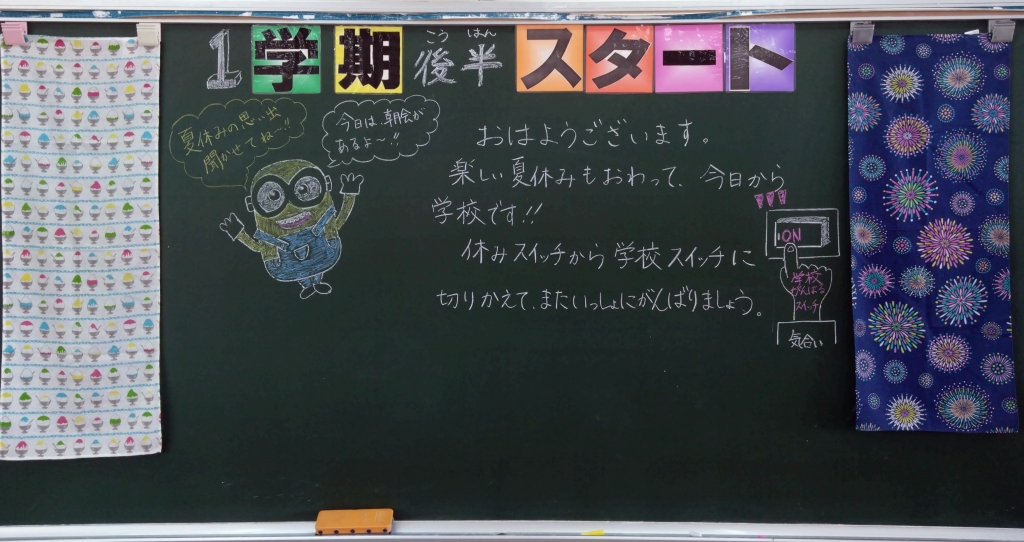 1学期後半スタート
こう はん
夏休みの思い出
聞かせてね〜!!
今日は、朝会が
あるよ〜!!
おはようございます。
楽しい夏休みもおわって、今日から
学校です!!
休みスイッチから学校スイッチに
切りかえて、またいっしょにがんばりましょう。
ON
学校
がんばる
スイッチ
気合い